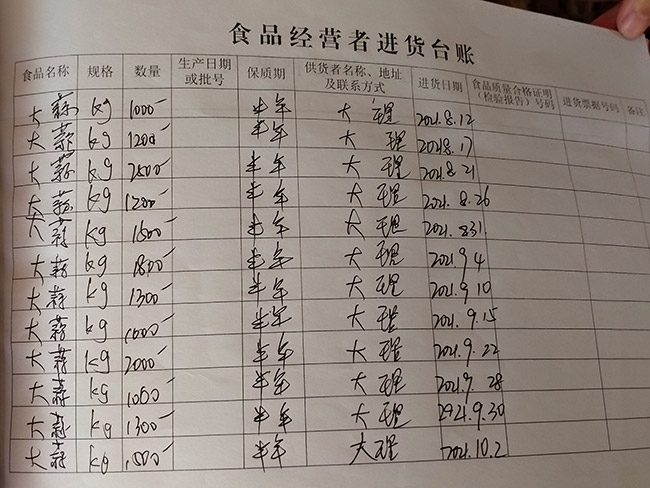 食品经营者进货台账
食品名称 规格 数量 生产日期或批号 保质期 供货者名称、地址及联系方式 进货日期 食品质量合格证明(检验报告)号码 进货票据号码 备注
大蒜 kg 1000 半年 大理 2021.8.12
大蒜 kg 1200 半年 大理 2021.8.17
大蒜 kg 2500 半年 大理 2021.8.21
大蒜 kg 1200 半年 大理 2021.8.26
大蒜 kg 1500 半年 大理 2021.8.31
大蒜 kg 1800 半年 大理 2021.9.4
大蒜 kg 1300 半年 大理 2021.9.10
大蒜 kg 1000 半年 大理 2021.9.15
大蒜 kg 2000 半年 大理 2021.9.22
大蒜 kg 1000 半年 大理 2021.9.28
大蒜 kg 1300 半年 大理 2021.9.30
大蒜 kg 1500 半年 大理 2021.10.2